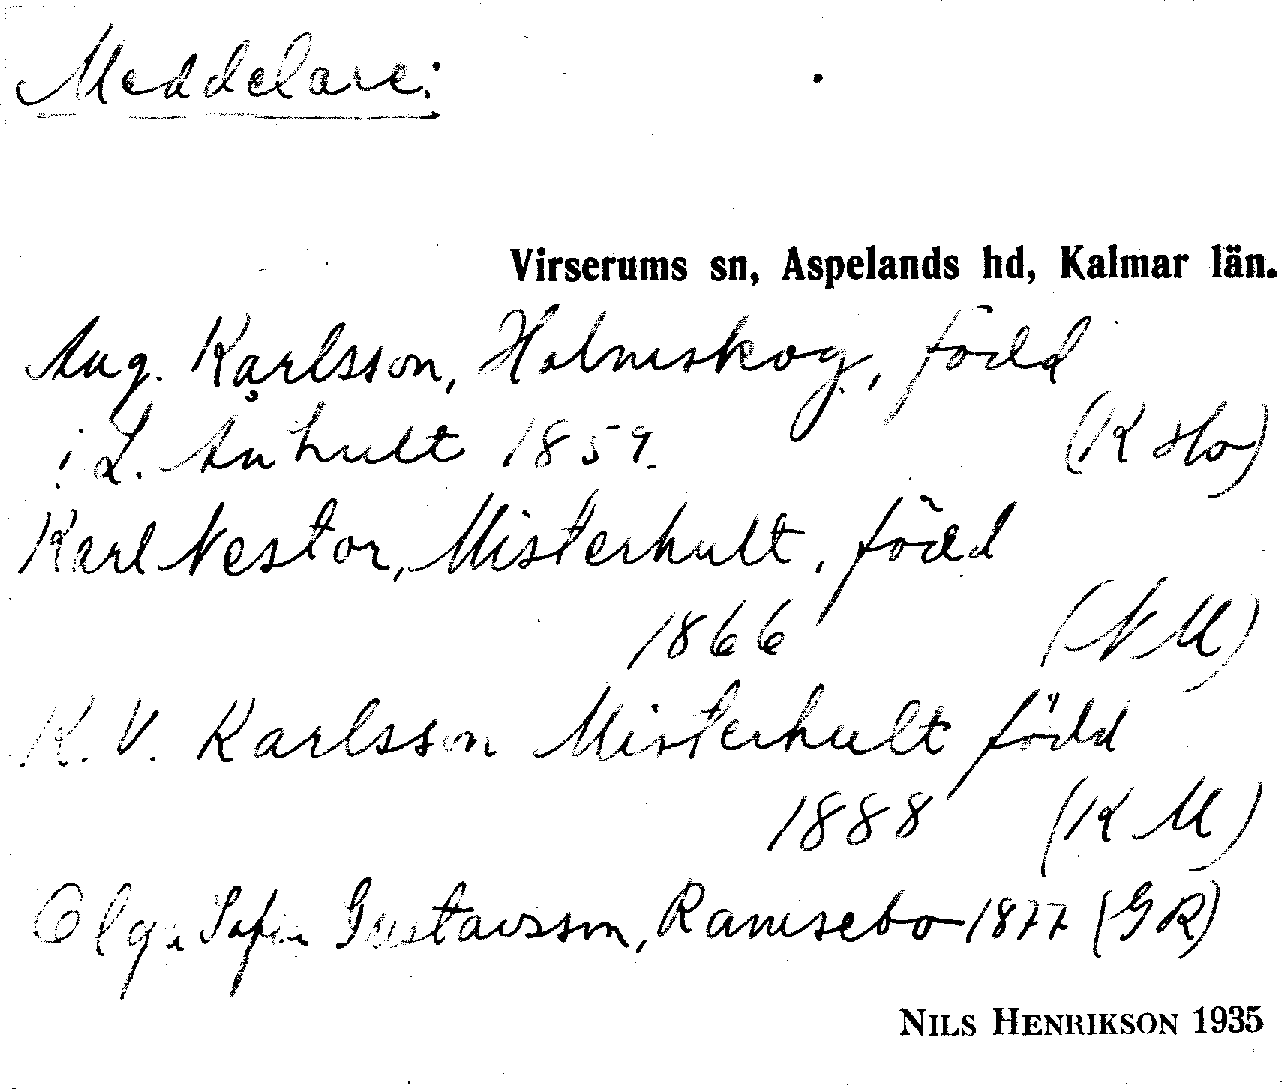 Meddelare:
Virserums sn, Aspelands hd, Kalmar län.
Aug. Karlsson, Holmskog, född
i L. Anhult 1859. (K Ho)
Karl Nestor, Misterhult, född
1866 (N M)
K. V. Karlsson Misterhult född
1888 (K M)
Olga Sofia Gustavsson, Ramsebo 1877 (G R)
NILS HENRIKSON 1935